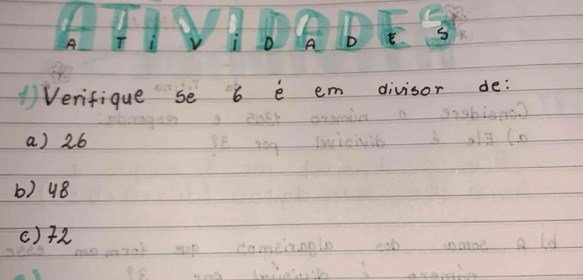 ATIVIDADES
1) Verifique se 6 é em divisor de:
a) 26
b) 48
c) 72